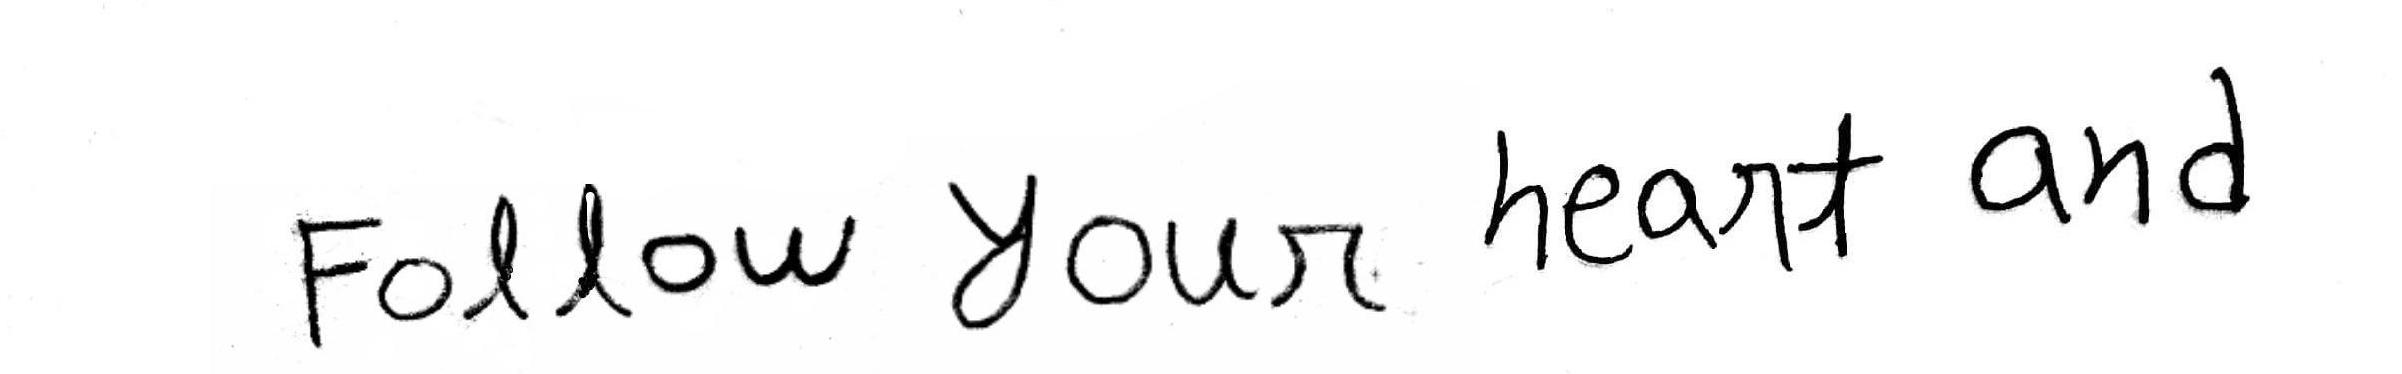 Follow your heart and